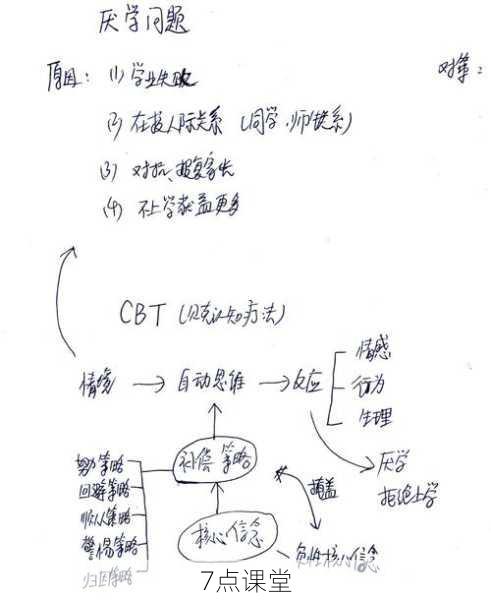 厌学问题
原因：(1) 学业失败
对策：
(2) 在校人际关系（同学、师生关系）
(3) 对抗、报复家长
(4) 不上学获益更多
CBT（贝克认知疗法）
情绪 → 自动思维 → 反应
情感
行为
生理
补偿策略
厌学
拒绝上学
努力策略
回避策略
顺从策略
警惕策略
归因策略
掩盖
核心信念
负性核心信念
7点课堂